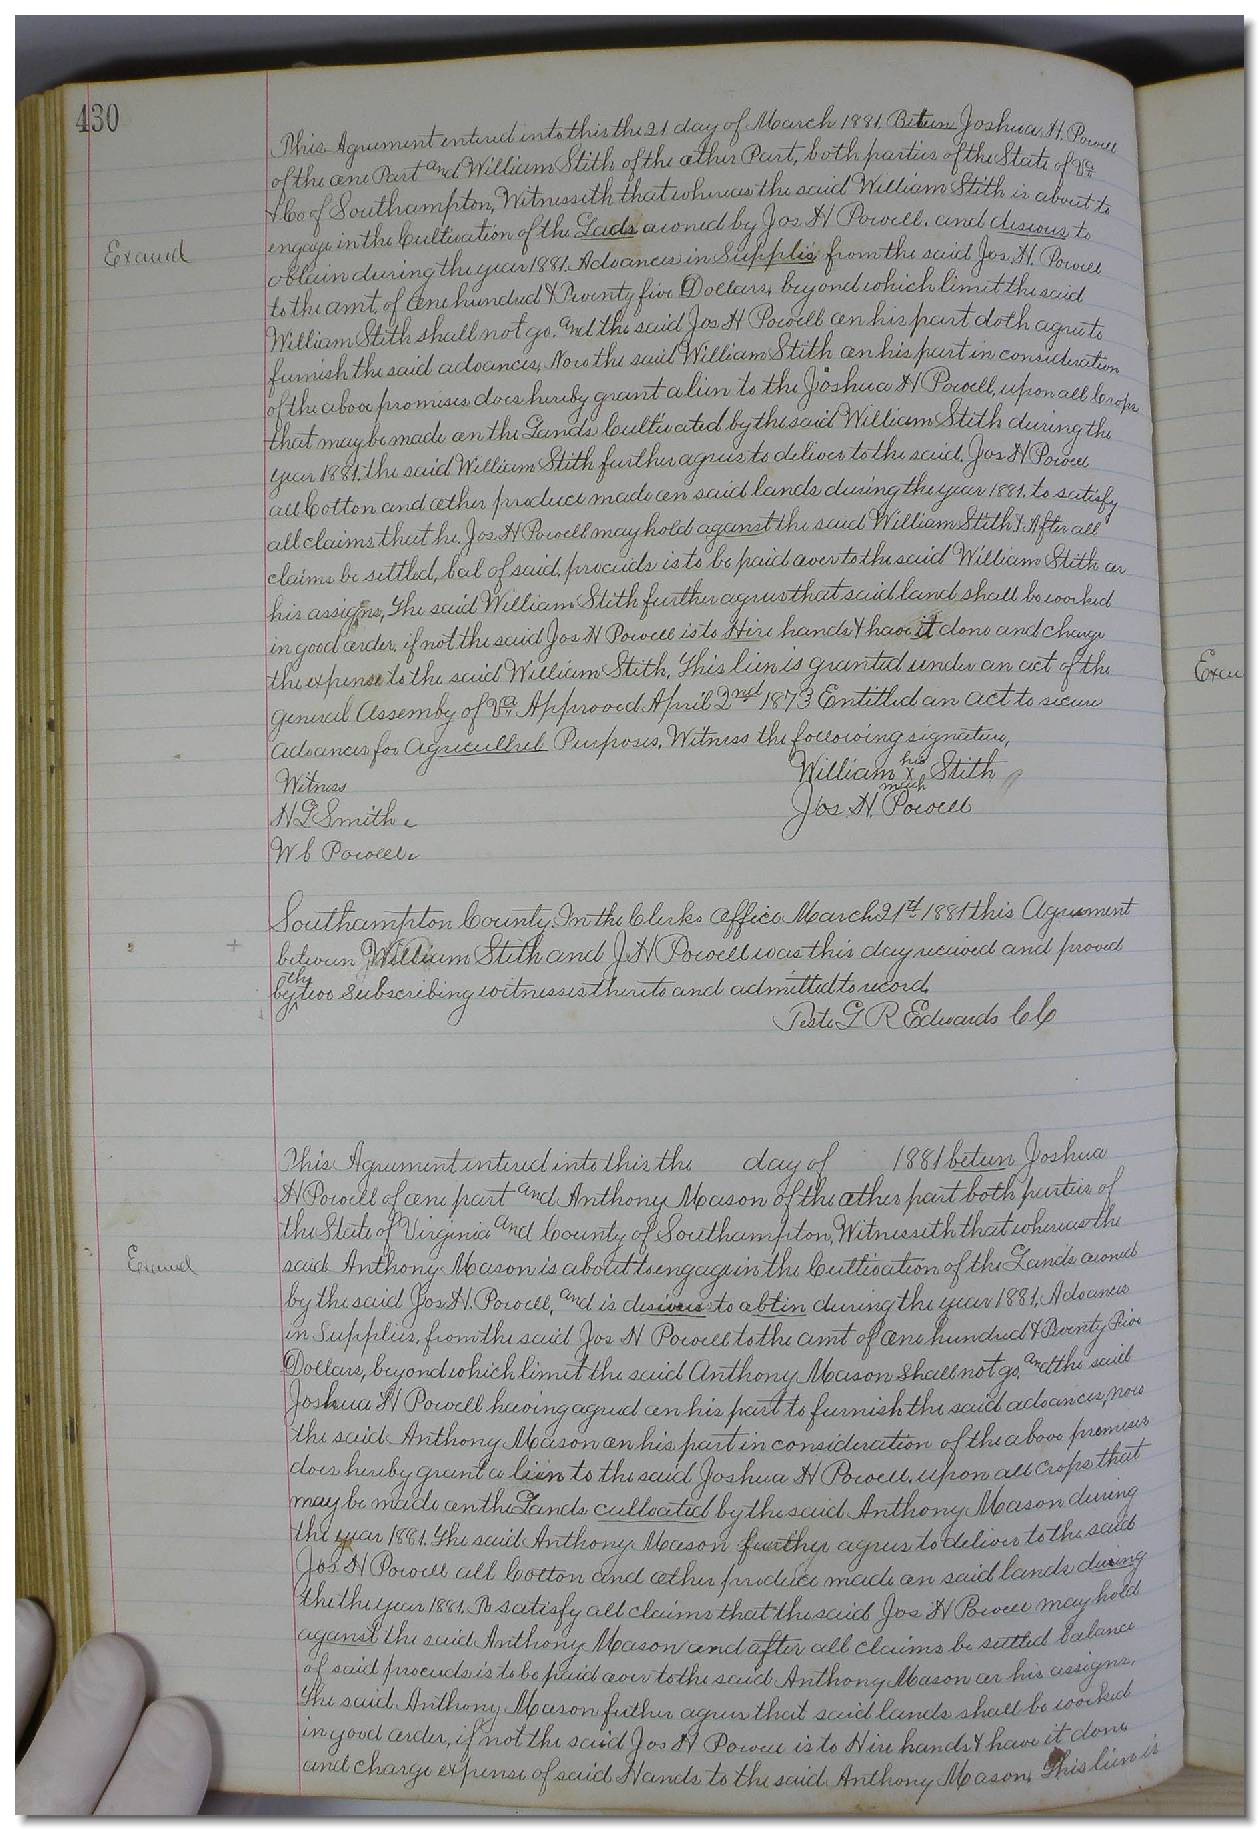 430
This Agreement entered into this the 21 day of March 1881 Betwen Joshua H. Powell
of the one Part and William Stith of the other Part, both parties of the State of Va
& Co of Southampton, Witnesseth that whereas the said William Stith is about to
engage in the Cultivation of the Lads owned by Jos H Powell. and desious to
Examd
obtain during the year 1881. Advances in Supplies from the said Jos. H. Powell
to the amt. of One hundred & Twenty five Dollars, beyond which limit the said
William Stith shall not go. and the said Jos H Powell on his part doth agree to
furnish the said advances, Now the said William Stith on his part in consideration
of the above promises does hereby grant a lien to the Joshua H Powell, upon all Crops
that may be made on the Lands Cultivated by the said William Stith during the
year 1881. the said William Stith further agrees to deliver to the said. Jos H Powell
all Cotton and other produce made on said lands during the year 1881. to satisfy
all claims that he. Jos H Powell may hold against the said William Stith & After all
claims be settled, bal of said, proceeds is to be paid over to the said William Stith or
his assigns, The said William Stith further agrees that said land shall be worked
in good order. if not the said Jos H Powell is to Hire hands & have it done and charge
the expense to the said William Stith, This lien is granted under an act of the
general Assembly of Va. Approved April 2nd 1873 Entitled an act to secure
advances for Agricultrel Purposes, Witness the following signature,
William his X mark Stith
Witness
Jos. H. Powell
H G Smith.
W C Powell.
Southampton County. In the Clerks Office March 21st 1881 this Agreement
between William Stith and J. H Powell was this day received and proved
by the two Subscribing witnesses thereto and admitted to record.
Teste G R Edwards CC
This Agreement entered into this the day of 1881 betwen Joshua
H Powell of one part and Anthony Mason of the other part both parties of
the State of Virginia and County of Southampton, Witnesseth that whereas the
Examd
said Anthony Mason is about to engage in the Cultivation of the Lands owned
by the said Jos. H. Powell, and is desious to obtin during the year 1881. Advances
in Supplies, from the said Jos H Powell to the amt of One hundred & Twenty Five
Dollars, beyond which limit the said Anthony Mason Shall not go, and the said
Joshua H Powell having agreed on his part to furnish the said advances, now
the said Anthony Mason on his part in consideration of the above promises
does hereby grant a lien to the said Joshua H Powell. upon all crops that
may be made on the Lands cultvated by the said Anthony Mason during
the year 1881. The said Anthony Mason further agrees to deliver to the said
Jos. H Powell all Cotton and other produce made on said lands during
the the year 1881. To satisfy all claims that the said Jos H Powell may hold
against the said Anthony Mason and after all claims be settled balance
of said proceeds is to be paid over to the said Anthony Mason or his assigns,
The said Anthony Mason futher agrees that said lands shall be worked
in good order, if not the said Jos H Powell is to Hire hands & have it done
and charge expense of said Hands to the said Anthony Mason. This lien is